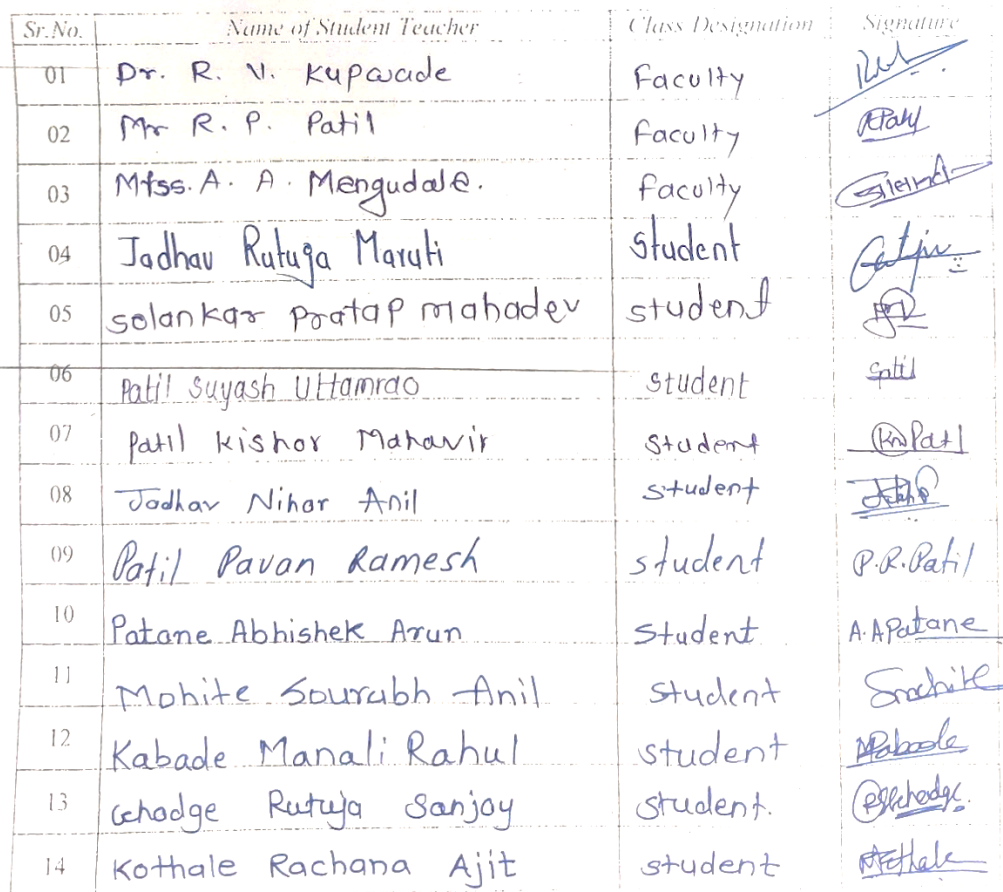 Sr.No. Name of Student Teacher Class Designation Signature
01 Dr. R. V. Kupwade Faculty
02 Mr R. P. Patil Faculty RPatil
03 Miss. A. A. Mengudale. Faculty
04 Jadhav Rutuja Maruti Student
05 Solankar Pratap Mahadev Student
06 Patil Suyash Uttamrao Student Spatil
07 Patil Kishor Mahavir Student Patil
08 Jadhav Nihar Anil Student
09 Patil Pavan Ramesh Student P.R.Patil
10 Patane Abhishek Arun Student A.APatane
11 Mohite Sourabh Anil Student Smohite
12 Kabade Manali Rahul Student
13 Ghodge Rutuja Sanjay Student.
14 Kothale Rachana Ajit Student